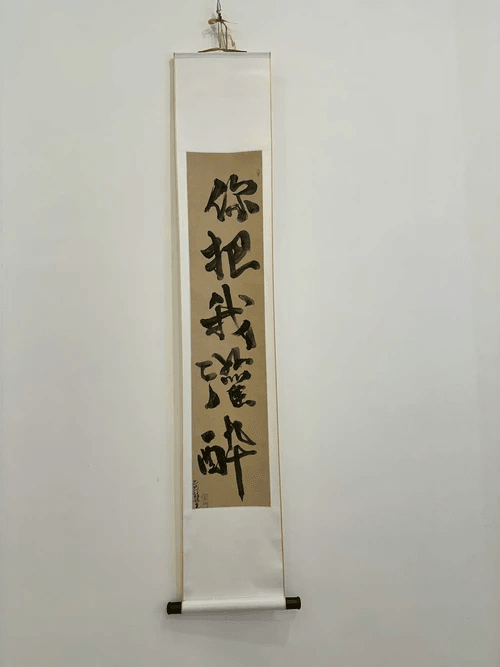 你把我灌醉